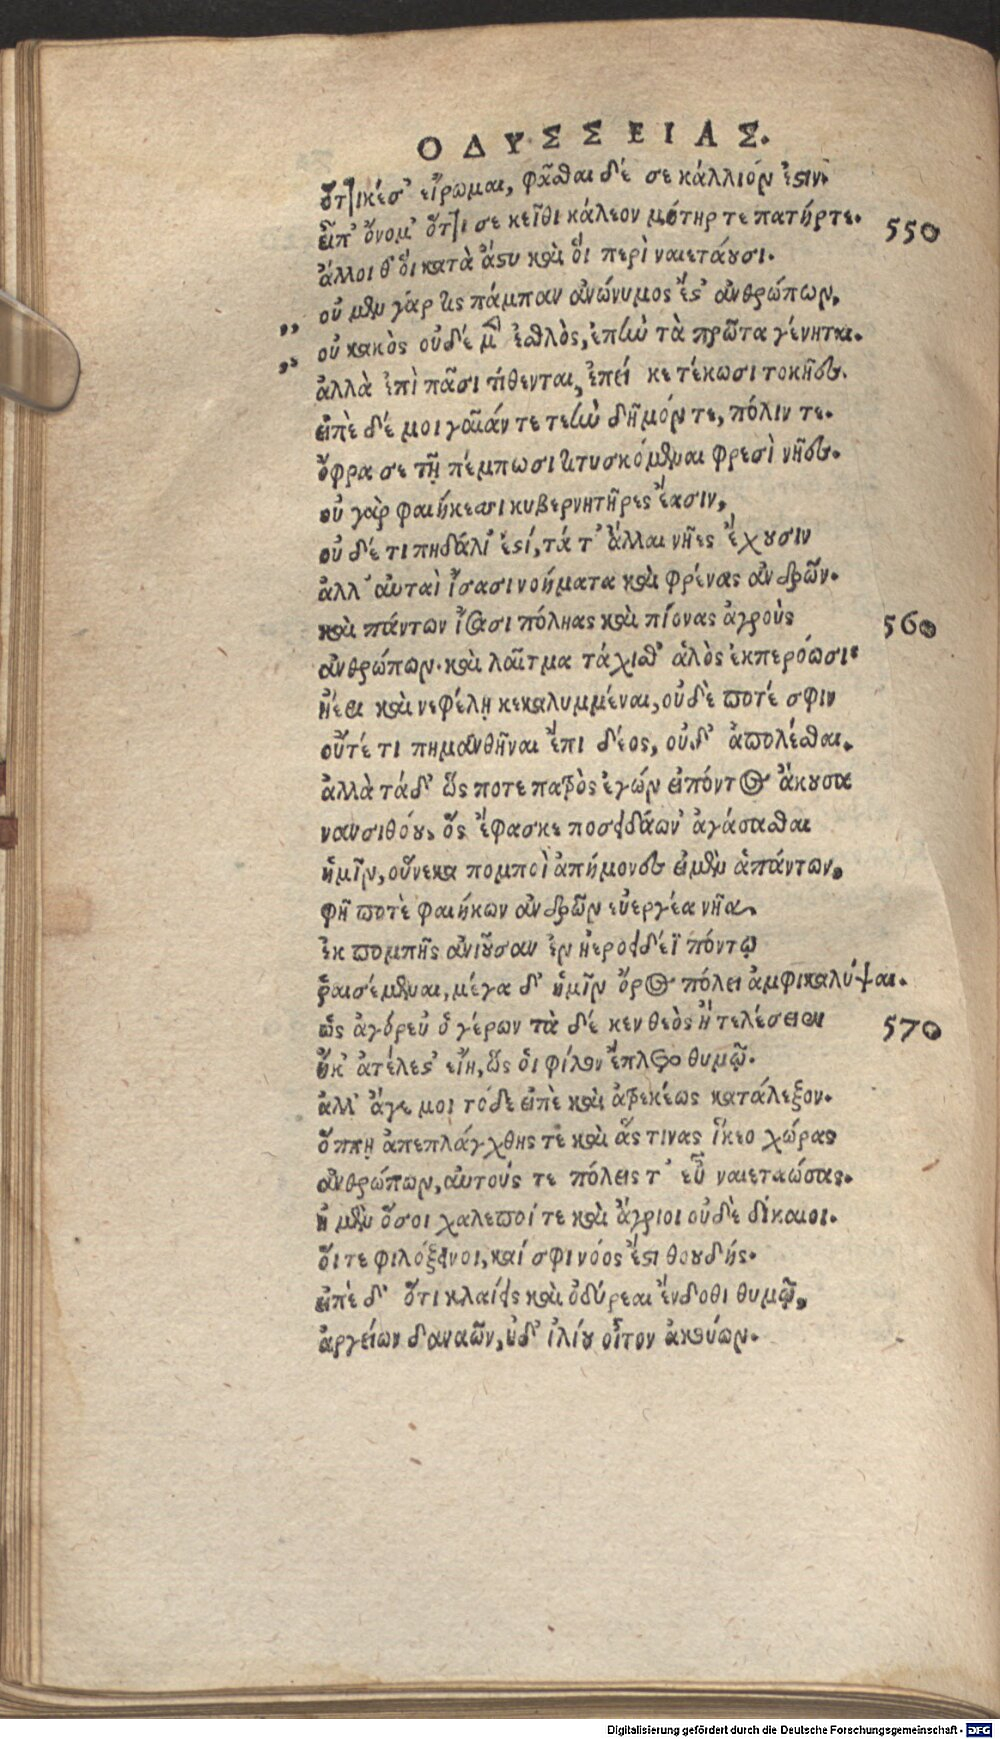 ΟΔΥΣΣΕΙΑΣ.
ὅττικέσ᾽ εἴρωμαι, φᾶσθαι δέ σε κάλλιόν ἐστιν.
εἴπ᾽ ὄνομ᾽ ὅττι σε κεῖθι κάλεον μήτηρ τε πατήρτε. 550
ἄλλοι θ᾽ οἳ κατὰ ἄστυ καὶ οἳ περὶ ναιετάουσι.
οὐ μὲν γάρ τις πάμπαν ἀνώνυμος ἔστ᾽ ἀνθρώπων,
„ οὐ κακὸς οὐδέ μὲν ἐσθλὸς, ἐπὴν τὰ πρῶτα γένηται.
„ ἀλλὰ ἐπὶ πᾶσι τίθενται, ἐπεί κε τέκωσι τοκῆες.
εἰπὲ δέ μοι γαῖάν τε τεὴν δῆμόν τε, πόλιν τε.
ὄφρα σε τῇ πέμπωσι τιτυσκόμεναι φρεσὶ νῆες.
οὐ γὰρ φαιήκεσσι κυβερνητῆρες ἔασιν,
οὐ δέ τι πηδάλι᾽ ἐστί, τά τ᾽ ἄλλαι νῆες ἔχουσιν
ἀλλ᾽ αὐταὶ ἴσασι νοήματα καὶ φρένας ἀνδρῶν.
καὶ πάντων ἴσασι πόληας καὶ πίονας ἀγροὺς 560
ἀνθρώπων. καὶ λαῖτμα τάχισθ᾽ ἁλὸς ἐκπερόωσι.
ἠέρι καὶ νεφέλῃ κεκαλυμμέναι, οὐδὲ ποτέ σφιν
οὔτέ τι πημανθῆναι ἔπι δέος, οὐδ᾽ ἀπολέσθαι.
ἀλλὰ τάδ᾽ ὥς ποτε πατρὸς ἐγών εἰπόντος ἄκουσα
ναυσιθόου, ὃς ἔφασκε ποσειδάων᾽ ἀγάσασθαι
ἡμῖν, οὕνεκα πομποὶ ἀπήμονές εἰμεν ἁπάντων,
φῆ ποτὲ φαιήκων ἀνδρῶν εὐεργέα νῆα,
ἐκ πομπῆς ἀνιοῦσαν ἐν ἠεροειδέϊ πόντῳ
ῥαισέμεναι, μέγα δ᾽ ἡμῖν ὄρος πόλει ἀμφικαλύψαι.
ὣς ἀγόρευ᾽ ὁ γέρων τὰ δέ κεν θεὸς ἢ τελέσειεν 570
ἤκ᾽ ἀτέλεστ᾽ εἴη, ὥς οἱ φίλον ἔπλετο θυμῷ.
ἀλλ᾽ ἄγε μοι τόδε εἰπὲ καὶ ἀτρεκέως κατάλεξον.
ὅππῃ ἀπεπλάγχθης τε καὶ ἅς τινας ἵκεο χώρας
ἀνθρώπων, αὐτούς τε πόλεις τ᾽ εὖ ναιεταώσας.
ἠ μὲν ὅσοι χαλεποί τε καὶ ἄγριοι οὐδὲ δίκαιοι.
οἵ τε φιλόξεινοι, καί σφι νόος ἐστὶ θουδής.
εἰπὲ δ᾽ ὅτι κλαίεις καὶ ὀδύρεαι ἔνδοθι θυμῷ,
ἀργείων δαναῶν, ἠδ᾽ ἰλίου οἶτον ἀκούων.
Digitalisierung gefördert durch die Deutsche Forschungsgemeinschaft - DFG